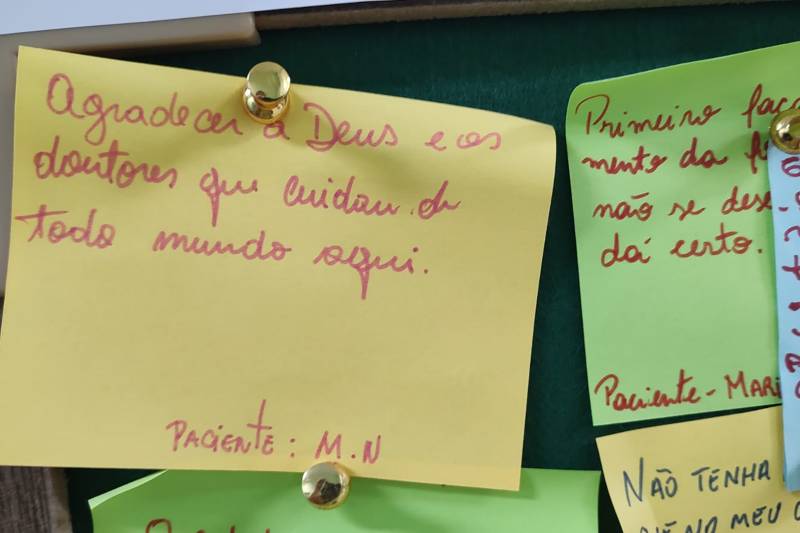 Agradecer a Deus e os
doutores que cuidam de
todo mundo aqui.
PACIENTE: M.N
Primeiro
mento da
não se
dá certo.
Paciente - MARI
NÃO TENHA
MEU